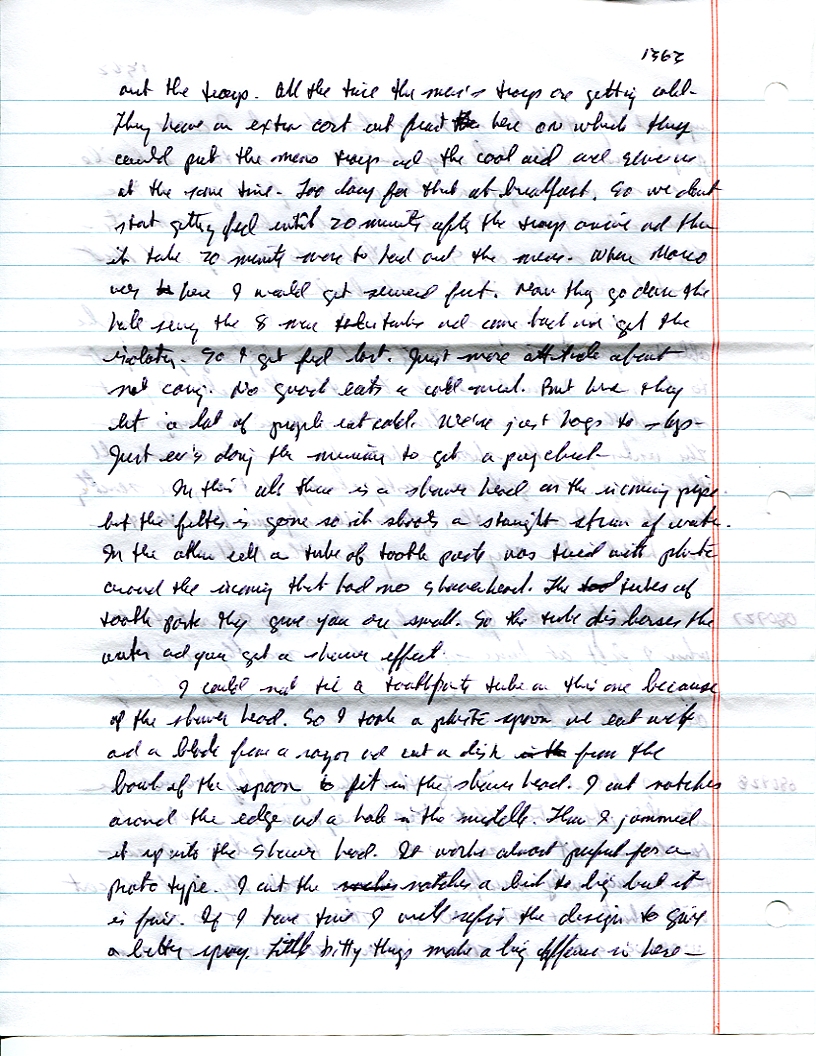 1362
out the trays. All the time the men's trays are getting cold.
They have an extra cart out front here on which they
could put the mens trays ad the cool aid and give us
at the same time. Too day for that at breakfast. So we don't
start getting fed until 20 minuts after the trays arive ad then
it take 20 minuts more to had out the mens. When
was here I would get served first. Now they go down the
hall serving the 8 man and come back and get the
isolaters. So I get fed last. Just more attitude about
not caring. No good eats a cold meal. But here they
let a lot of people eat cold. We're just hogs to slop.
Just doing the minimum to get a paycheck
In this cell there is a shower head on the incoming pipe
but the filter is gone so it shoots a straight stream of water.
In the other cell a tube of tooth paste was tied with plastic
around the incoming that had no showerhead. The tubes of
tooth paste they give you are small. So the tube disberses the
water ad you get a shower effect.
I could not tie a toothpaste tube on this one because
of the shower head. So I took a plastic spoon we eat with
ad a blade from a razor ad cut a disk from the
bowl of the spoon to fit in the shower head. I cut notches
around the edge ad a hole in the middle. Then I jammed
it up into the shower head. It works almost perfect for a
proto type. I cut the notches a bit to big but it
is fair. If I have time I will refine the design to give
a better spray. Little bitty things make a big difference in here—